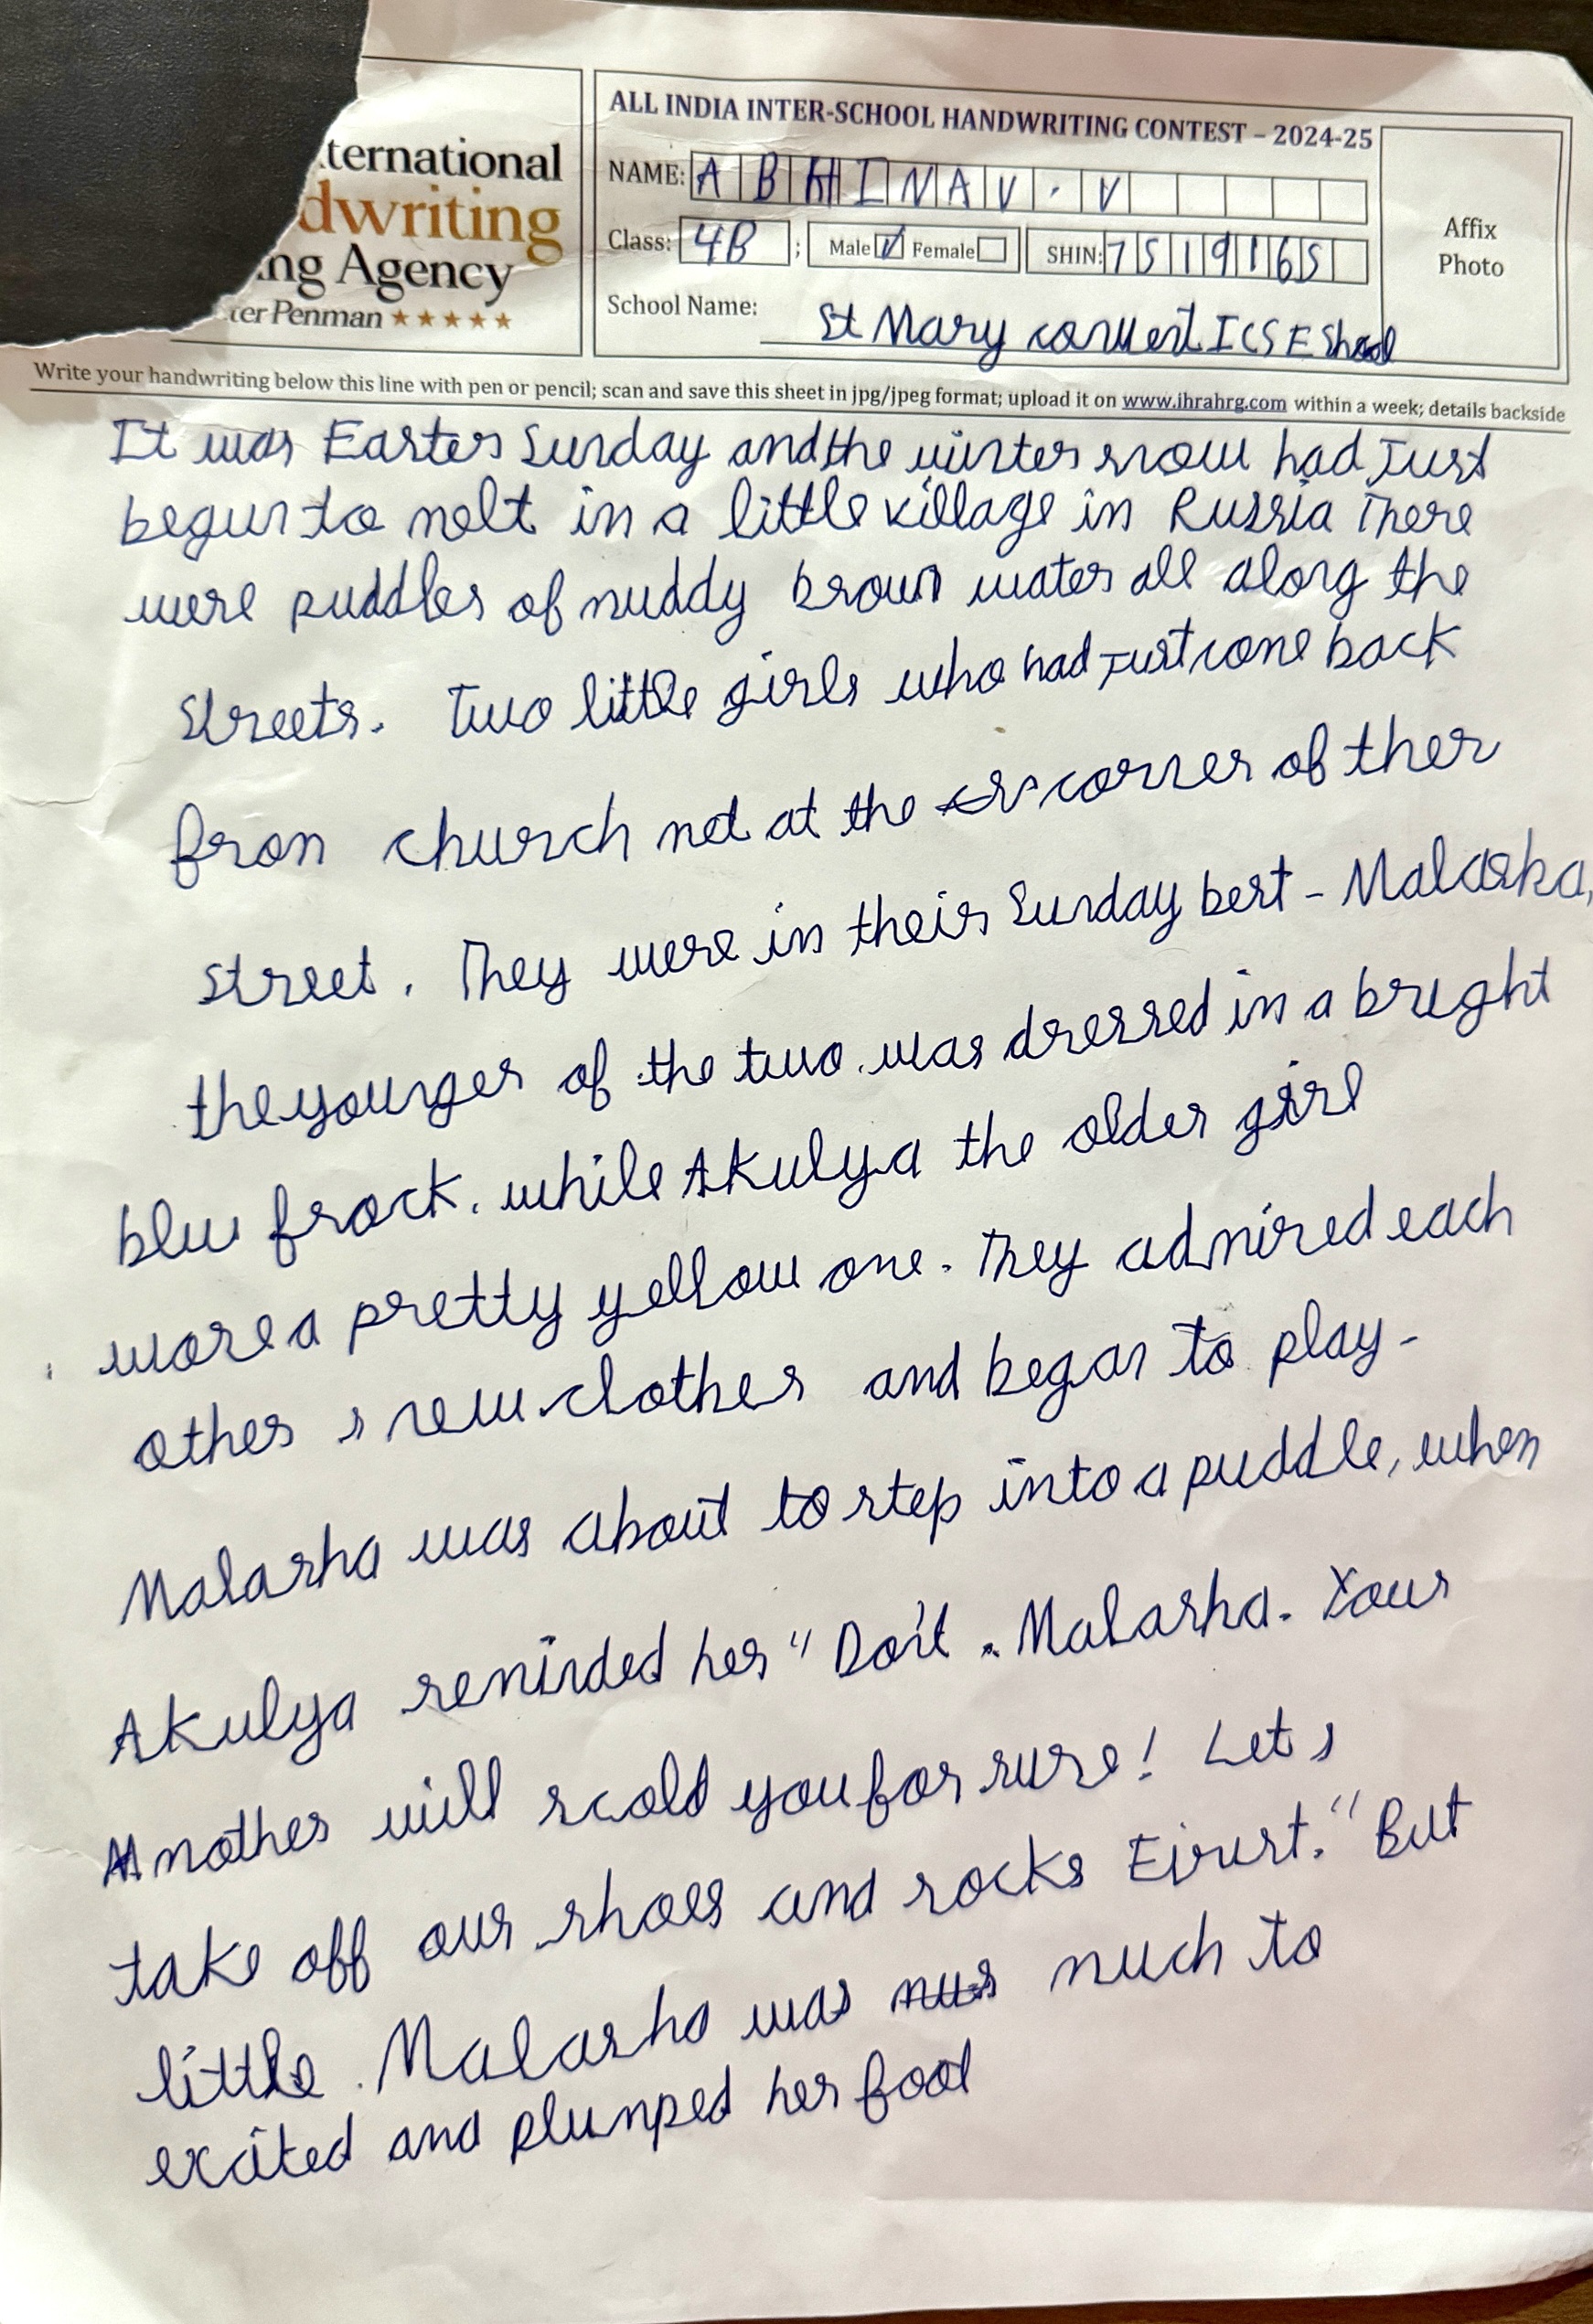 ternational
dwriting
ng Agency
ter Penman ★★★★★
ALL INDIA INTER-SCHOOL HANDWRITING CONTEST – 2024-25
NAME: ABHINAV.V
Class: 4B ; Male ✓ Female SHIN: 7519165
School Name: St Mary convent ICSE Shool
Affix
Photo
Write your handwriting below this line with pen or pencil; scan and save this sheet in jpg/jpeg format; upload it on www.ihrahrg.com within a week; details backside
It was Easter Sunday and the winter snow had Just
begun to melt in a little village in Russia There
were puddles of muddy brown water all along the
Streets. Two little girls who had Just come back
from church met at the corner of ther
street. They were in their Sunday best - Malaska,
the younger of the two. was dressed in a breght
blu frock. while Akulya the older girl
wore a pretty yellow one. They admired each
other s new clothes and began to play-
Malasha was about to step into a puddle, when
Akulya reminded her "Don't. Malasha. Your
mother will scold you for sure! Let s
take off our shoes and socks But
little. Malasha was much to
excited and plumped her foot